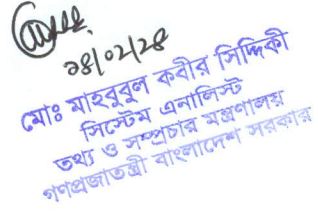 ১৪/০২/২৪
মোঃ মাহবুবুল কবীর সিদ্দিকী
সিস্টেম এনালিস্ট
তথ্য ও সম্প্রচার মন্ত্রণালয়
গণপ্রজাতন্ত্রী বাংলাদেশ সরকার